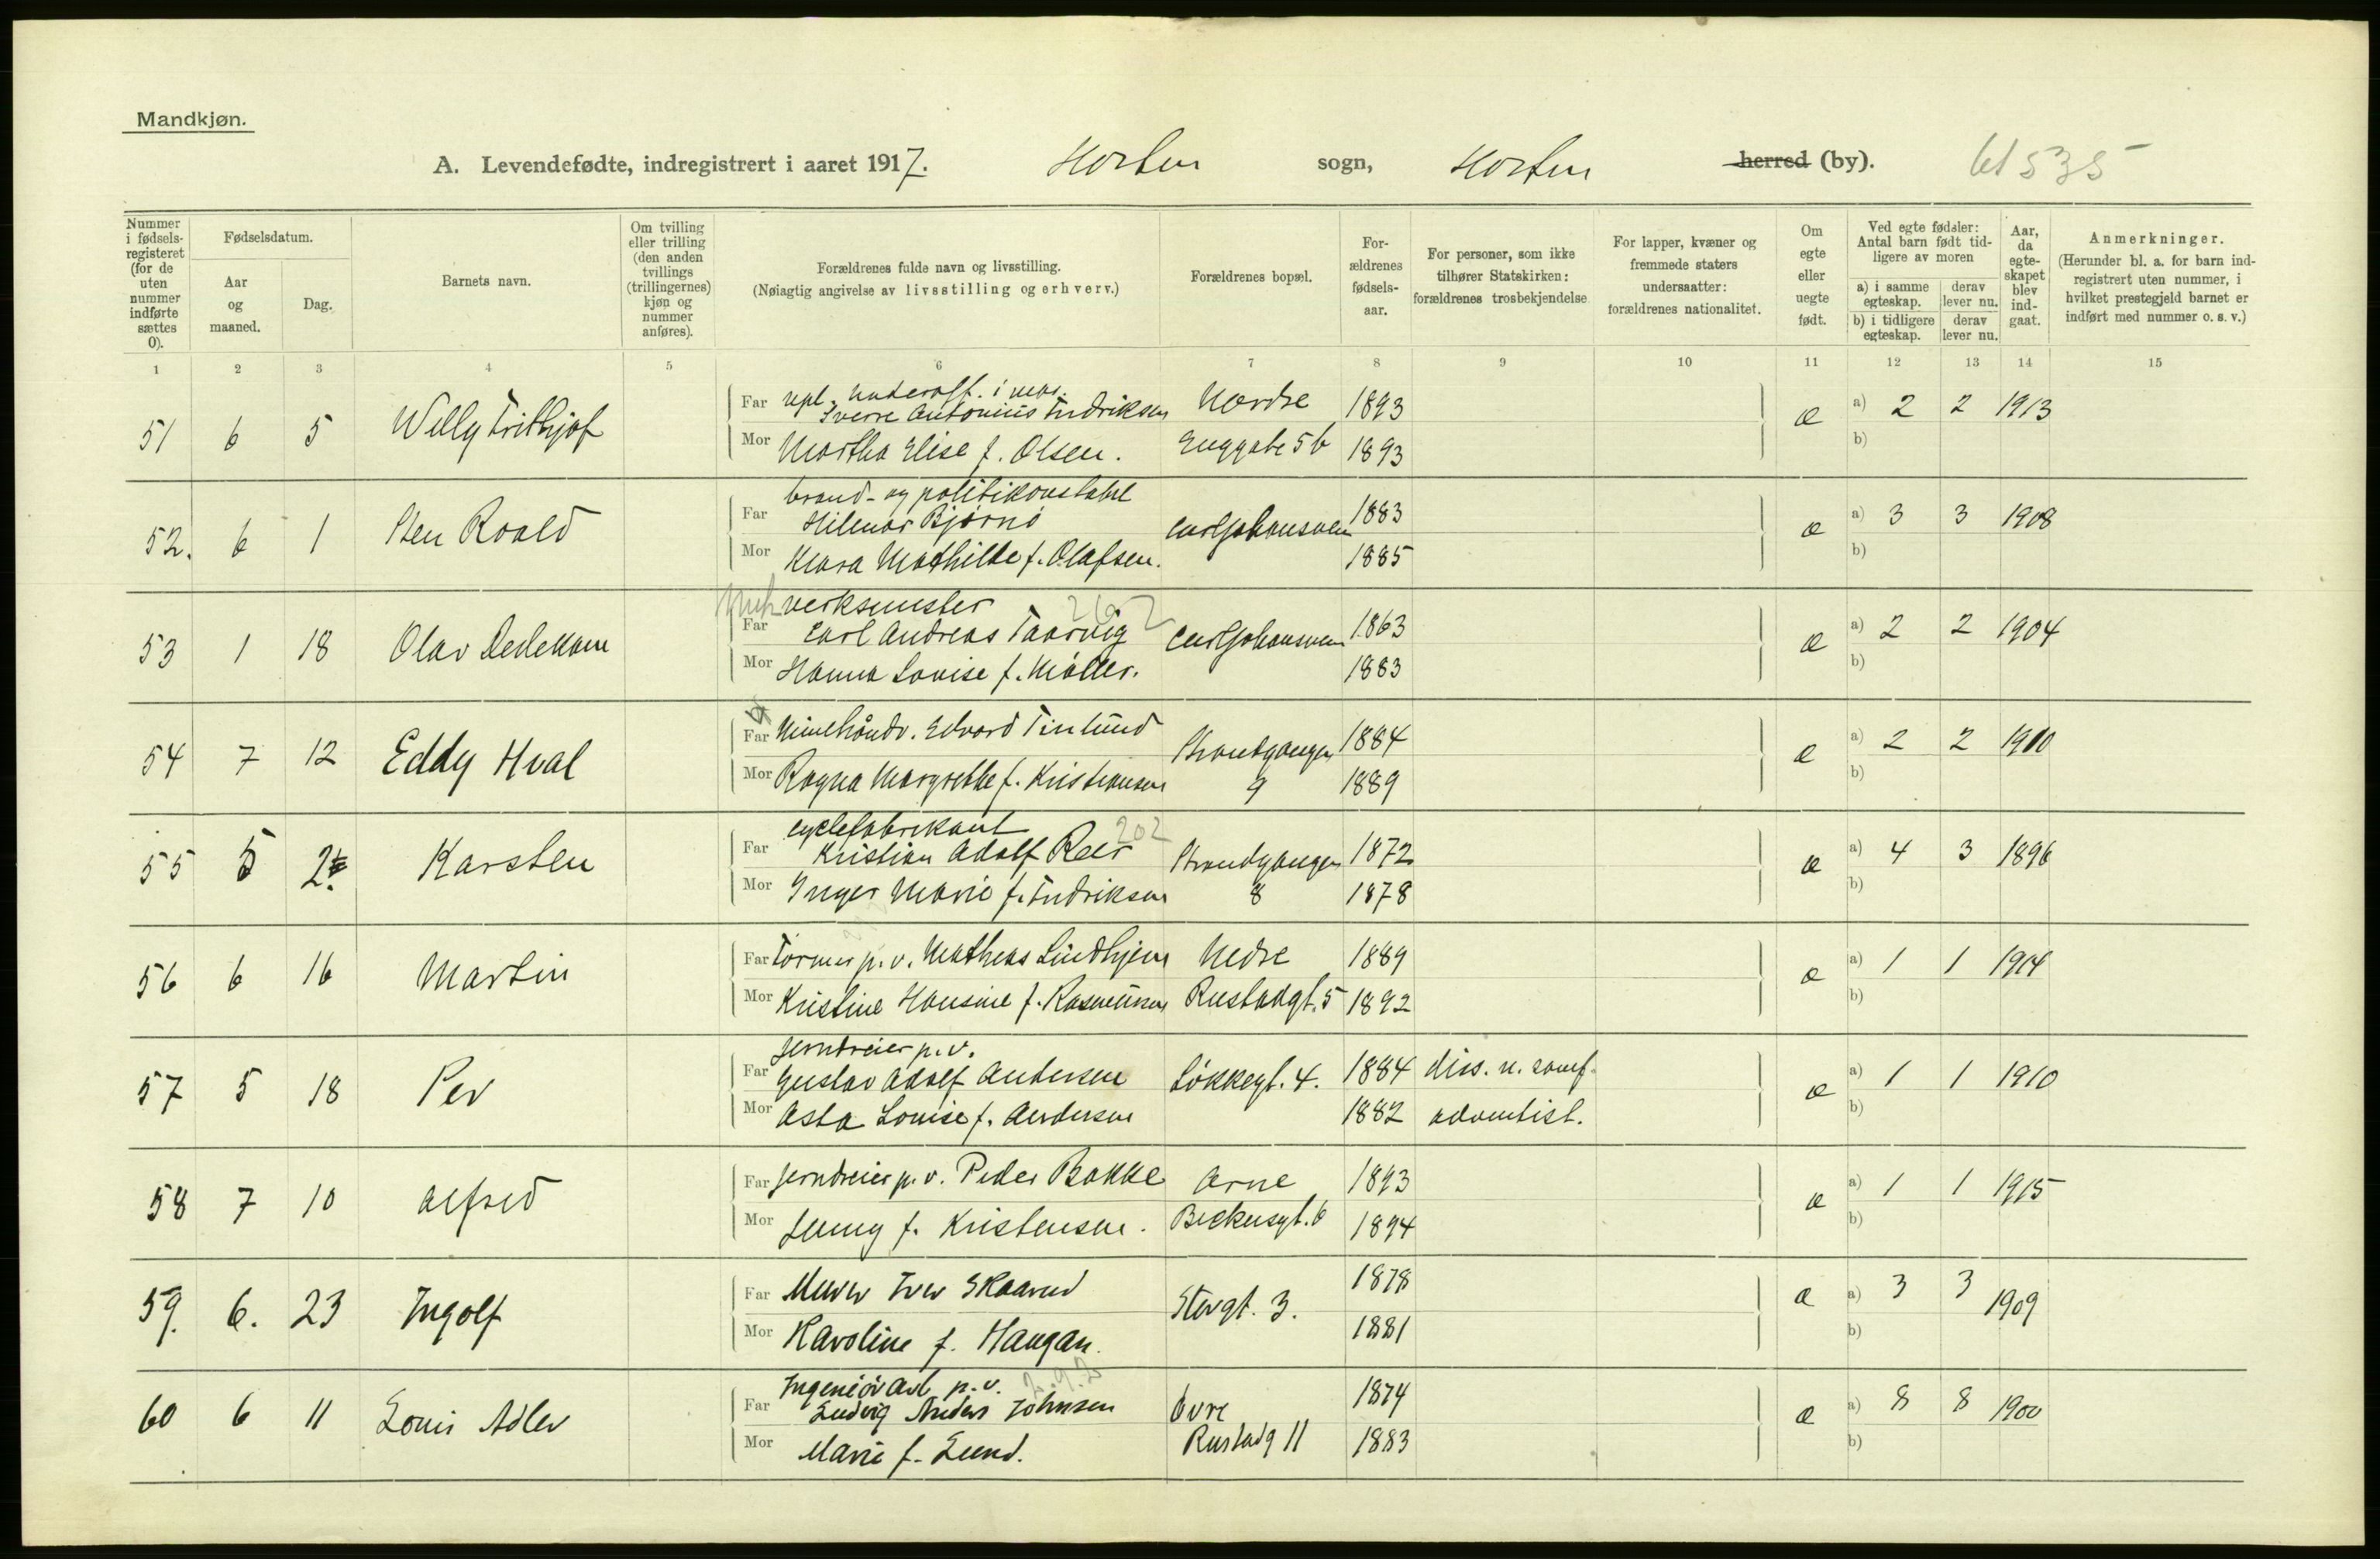 Mandkjøn.
A. Levendefødte, indregistrert i aaret 1917. Horten sogn, Horten herred (by). 61535
Nummer i fødsels-registeret (for de uten nummer indførte sættes 0).
Fødselsdatum.
Aar og maaned.
Dag.
Barnets navn.
Om tvilling eller trilling (den anden tvillings (trillingernes) kjøn og nummer anføres).
Forældrenes fulde navn og livsstilling.
(Nøiagtig angivelse av livsstilling og erhverv.)
Forældrenes bopæl.
For-ældrenes fødsels-aar.
For personer, som ikke tilhører Statskirken: forældrenes trosbekjendelse
For lapper, kvæner og fremmede staters undersaatter: forældrenes nationalitet.
Om egte eller uegte født.
Ved egte fødsler: Antal barn født tid-ligere av moren
a) i samme egteskap.
derav lever nu.
b) i tidligere egteskap.
derav lever nu.
Aar, da egte-skapet blev ind-gaat.
Anmerkninger.
(Herunder bl. a. for barn ind-registrert uten nummer, i hvilket prestegjeld barnet er indført med nummer o. s. v.)
1 2 3 4 5 6 7 8 9 10 11 12 13 14 15
vpl. underoff. i mar.
51 6 5 Willy Frithjof Far Sverre Antonius Fredriksen Nordre 1893 æ a) 2 2 1913
Mor Martha Elise f. Olsen. Enggate 5b 1893 b)
brand- og politikonstabel
52. 6 1 Sten Roald Far Hilmar Bjørnø Carljohansvern 1883 æ a) 3 3 1908
Mor Klara Mathilde f. Olafsen. 1885 b)
verksmester 262
53 1 18 Olav Dedekam Far Carl Andreas Taarvig Carljohansvern 1863 æ a) 2 2 1904
Mor Hanna Lovise f. Møller. 1883 b)
54 7 12 Eddy Hval Far Minehåndv. Edvard Finlund Strandgangen 1884 æ a) 2 2 1910
Mor Ragna Margrethe f. Kristiansen 9 1889 b)
cyclefabrikant 202
55 5 2. Karsten Far Kristian Adolf Reer Strandgangen 1872 æ a) 4 3 1896
Mor Inger Marie f. Fredriksen 8 1878 b)
56 6 16 Martin Far Former p. v. Mathias Lindhjem Nedre 1889 æ a) 1 1 1914
Mor Kristine Hansine f. Rasmussen Rustadgt. 5 1892 b)
Jerndreier p. v.
57 5 18 Per Far Gustav Adolf Andersen Løkkegt. 4. 1884 diss. u. samf. æ a) 1 1 1910
Mor Asta Louise f. Andersen 1882 adventist. b)
58 7 10 Alfred Far Jerndreier p. v. Peder Bakke Arne 1893 æ a) 1 1 1915
Mor Jenny f. Kristensen. Bickersgt. 6 1894 b)
59. 6. 23 Ingolf Far Murer Iver Skaarud Storgt. 3. 1878 æ a) 3 3 1909
Mor Karoline f. Haugan. 1881 b)
Ingeniørarb. p. v.
60 6 11 Louis Adler Far Ludvig Anders Johnsen Øvre 1874 æ a) 8 8 1900
Mor Marie f. Lund. Rustadg 11 1883 b)